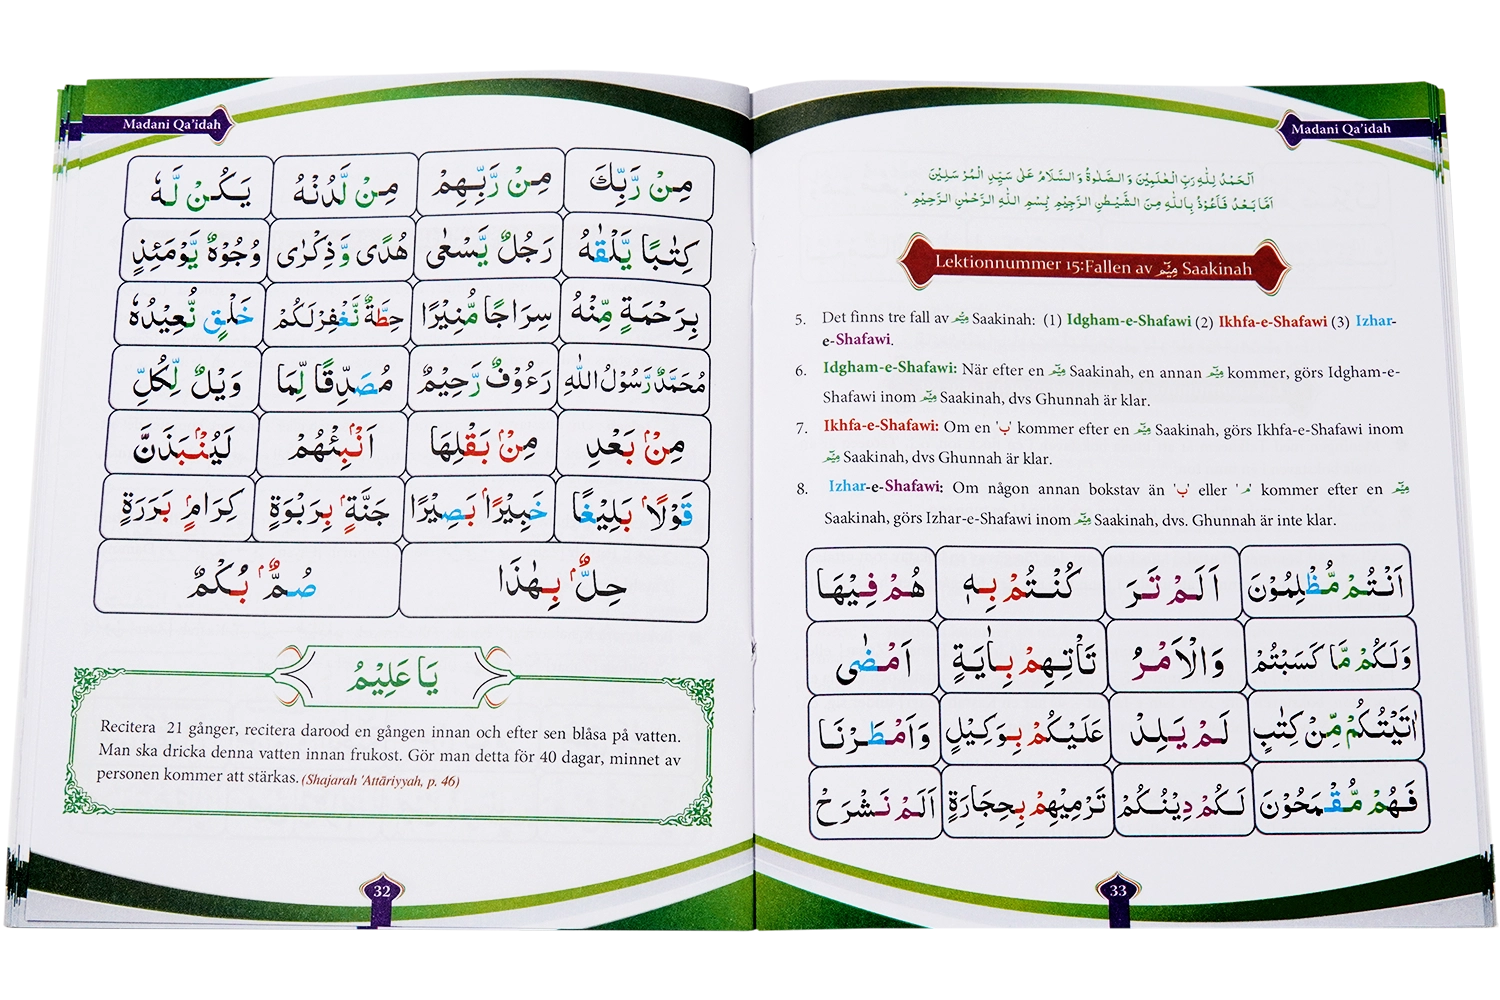 Madani Qa'idah
مِنْ رَّبِّكَ مِنْ رَّبِّهِمْ مِنْ لَّدُنْهُ يَكُنْ لَّهٗ
كِتٰبًا يَّلْقٰىهُ رَجُلٌ يَّسْعٰى هُدًى وَّذِكْرٰى وُجُوْهٌ يَّوْمَئِذٍ
بِرَحْمَةٍ مِّنْهُ سِرَاجًا مُّنِيْرًا حِطَّةٌ نَّغْفِرْلَكُمْ خَلْقٍ نُّعِيْدُهٗ
مُحَمَّدٌ رَّسُوْلُ اللهِ رَءُوْفٌ رَّحِيْمٌ مُصَدِّقًا لِّمَا وَيْلٌ لِّكُلِّ
مِنْۢ بَعْدِ مِنْۢ بَقْلِهَا اَنْۢبِئْهُمْ لَيُنْۢبَذَنَّ
قَوْلًاۢ بَلِيْغًا خَبِيْرًاۢ بَصِيْرًا جَنَّةٍۭ بِرَبْوَةٍ كِرَامٍۭ بَرَرَةٍ
حِلٌّۢ بِهٰذَا صُمٌّۢ بُكْمٌ
يَا عَلِيْمُ
Recitera 21 gånger, recitera darood en gången innan och efter sen blåsa på vatten.
Man ska dricka denna vatten innan frukost. Gör man detta för 40 dagar, minnet av
personen kommer att stärkas. (Shajarah 'Attāriyyah, p. 46)
32
Madani Qa'idah
اَلْحَمْدُ لِلّٰهِ رَبِّ الْعٰلَمِيْنَ وَالصَّلٰوةُ وَالسَّلَامُ عَلٰى سَيِّدِ الْمُرْسَلِيْنَ
اَمَّا بَعْدُ فَاَعُوْذُ بِاللّٰهِ مِنَ الشَّيْطٰنِ الرَّجِيْمِ بِسْمِ اللّٰهِ الرَّحْمٰنِ الرَّحِيْمِ
Lektionnummer 15:Fallen av مِيْم Saakinah
5. Det finns tre fall av مِيْم Saakinah: (1) Idgham-e-Shafawi (2) Ikhfa-e-Shafawi (3) Izhar-
e-Shafawi.
6. Idgham-e-Shafawi: När efter en مِيْم Saakinah, en annan مِيْم kommer, görs Idgham-e-
Shafawi inom مِيْم Saakinah, dvs Ghunnah är klar.
7. Ikhfa-e-Shafawi: Om en 'ب' kommer efter en مِيْم Saakinah, görs Ikhfa-e-Shafawi inom
مِيْم Saakinah, dvs Ghunnah är klar.
8. Izhar-e-Shafawi: Om någon annan bokstav än 'ب' eller 'م' kommer efter en مِيْم
Saakinah, görs Izhar-e-Shafawi inom مِيْم Saakinah, dvs. Ghunnah är inte klar.
اَنْتُمْ مُّظْلِمُوْنَ اَلَمْ تَرَ كُنْتُمْ بِهٖ هُمْ فِيْهَا
وَلَكُمْ مَّا كَسَبْتُمْ وَالْاَمْرُ تَاْتِهِمْ بِاٰيَةٍ اَمْضٰى
اٰتَيْتُكُمْ مِّنْ كِتٰبٍ لَمْ يَلِدْ عَلَيْكُمْ بِوَكِيْلٍ وَاَمْطَرْنَا
فَهُمْ مُّقْمَحُوْنَ لَكُمْ دِيْنُكُمْ تَرْمِيْهِمْ بِحِجَارَةٍ اَلَمْ نَشْرَحْ
33